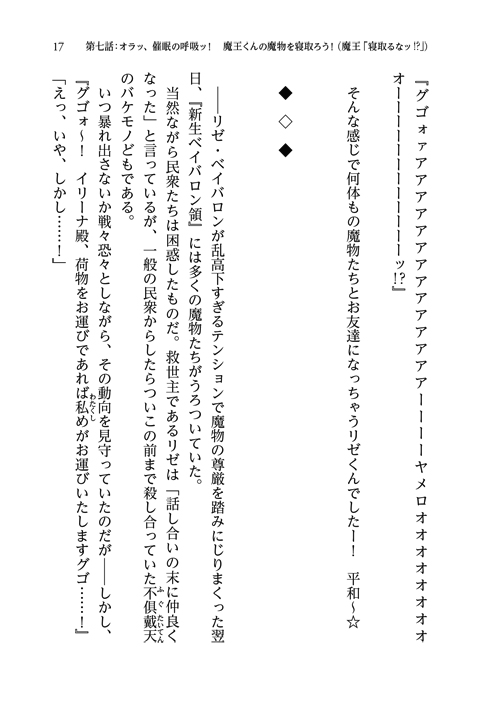 17　第七話：オラッ、催眠の呼吸ッ！　魔王くんの魔物を寝取ろう！（魔王「寝取るなッ!?」）
『グゴォァアアアアアアアアアアアーーーーヤメロオオオオオオオオ
オーーーーーーーーーーーッ!?』
そんな感じで何体もの魔物たちとお友達になっちゃうリゼくんでしたー！　平和～☆
◆　◇　◆
――リゼ・ベイバロンが乱高下すぎるテンションで魔物の尊厳を踏みにじりまくった翌
日、『新生ベイバロン領』には多くの魔物たちがうろついていた。
当然ながら民衆たちは困惑したものだ。救世主であるリゼは「話し合いの末に仲良く
なった」と言っているが、一般の民衆からしたらついこの前まで殺し合っていた不倶戴天
のバケモノどもである。
いつ暴れ出さないか戦々恐々としながら、その動向を見守っていたのだが――しかし、
『グゴォ～！　イリーナ殿、荷物をお運びであれば私めがお運びいたしますグゴ……！』
「えっ、いや、しかし……！」